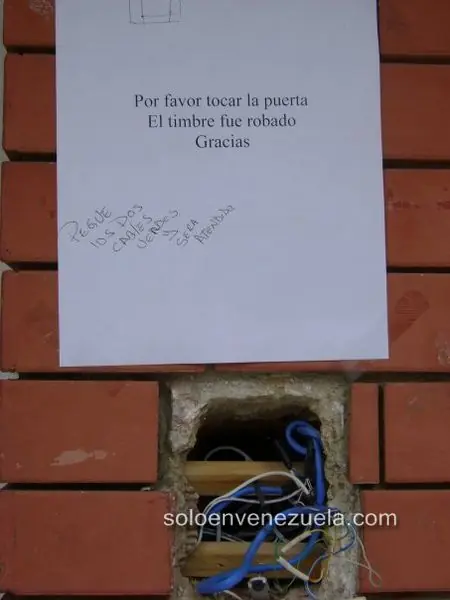 Por favor tocar la puerta
El timbre fue robado
Gracias
PEGUE
LOS DOS
CABLES
VERDES
Y
SERA
ATENDIDO
soloenvenezuela.com